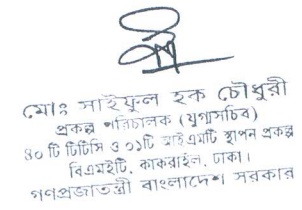 মোঃ সাইফুল হক চৌধুরী
প্রকল্প পরিচালক (যুগ্মসচিব)
৪০ টি টিটিসি ও ০১টি আইএমটি স্থাপন প্রকল্প
বিএমইটি, কাকরাইল, ঢাকা।
গণপ্রজাতন্ত্রী বাংলাদেশ সরকার